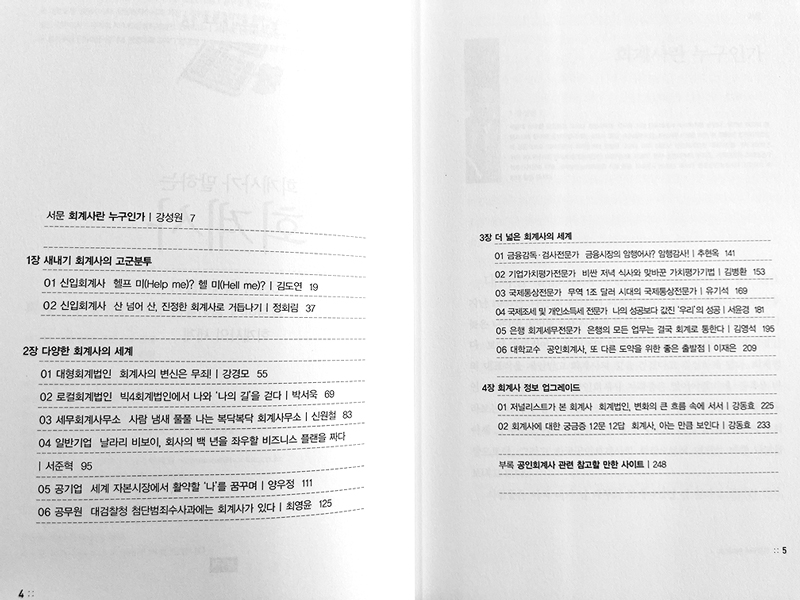 서문 회계사란 누구인가 | 강성원 7
1장 새내기 회계사의 고군분투
01 신입회계사 헬프 미(Help me)? 헬 미(Hell me)? | 김도연 19
02 신입회계사 산 넘어 산, 진정한 회계사로 거듭나기 | 정화림 37
2장 다양한 회계사의 세계
01 대형회계법인 회계사의 변신은 무죄! | 강경모 55
02 로컬회계법인 빅4회계법인에서 나와 '나의 길'을 걷다 | 박서욱 69
03 세무회계사무소 사람 냄새 풀풀 나는 복닥복닥 회계사무소 | 신원철 83
04 일반기업 날라리 비보이, 회사의 백 년을 좌우할 비즈니스 플랜을 짜다
| 서준혁 95
05 공기업 세계 자본시장에서 활약할 '나'를 꿈꾸며 | 양우정 111
06 공무원 대검찰청 첨단범죄수사과에는 회계사가 있다 | 최영윤 125
4 ::
3장 더 넓은 회계사의 세계
01 금융감독·검사전문가 금융시장의 암행어사? 암행감사! | 추현옥 141
02 기업가치평가전문가 비싼 저녁 식사와 맞바꾼 가치평가기법 | 김병환 153
03 국제통상전문가 무역 1조 달러 시대의 국제통상전문가 | 유기석 169
04 국제조세 및 개인소득세 전문가 나의 성공보다 값진 '우리'의 성공 | 서윤경 181
05 은행 회계세무전문가 은행의 모든 업무는 결국 회계로 통한다 | 김영석 195
06 대학교수 공인회계사, 또 다른 도약을 위한 좋은 출발점 | 이재은 209
4장 회계사 정보 업그레이드
01 저널리스트가 본 회계사 회계법인, 변화의 큰 흐름 속에 서서 | 강동효 225
02 회계사에 대한 궁금증 12문 12답 회계사, 아는 만큼 보인다 | 강동효 233
부록 공인회계사 관련 참고할 만한 사이트 | 248
:: 5